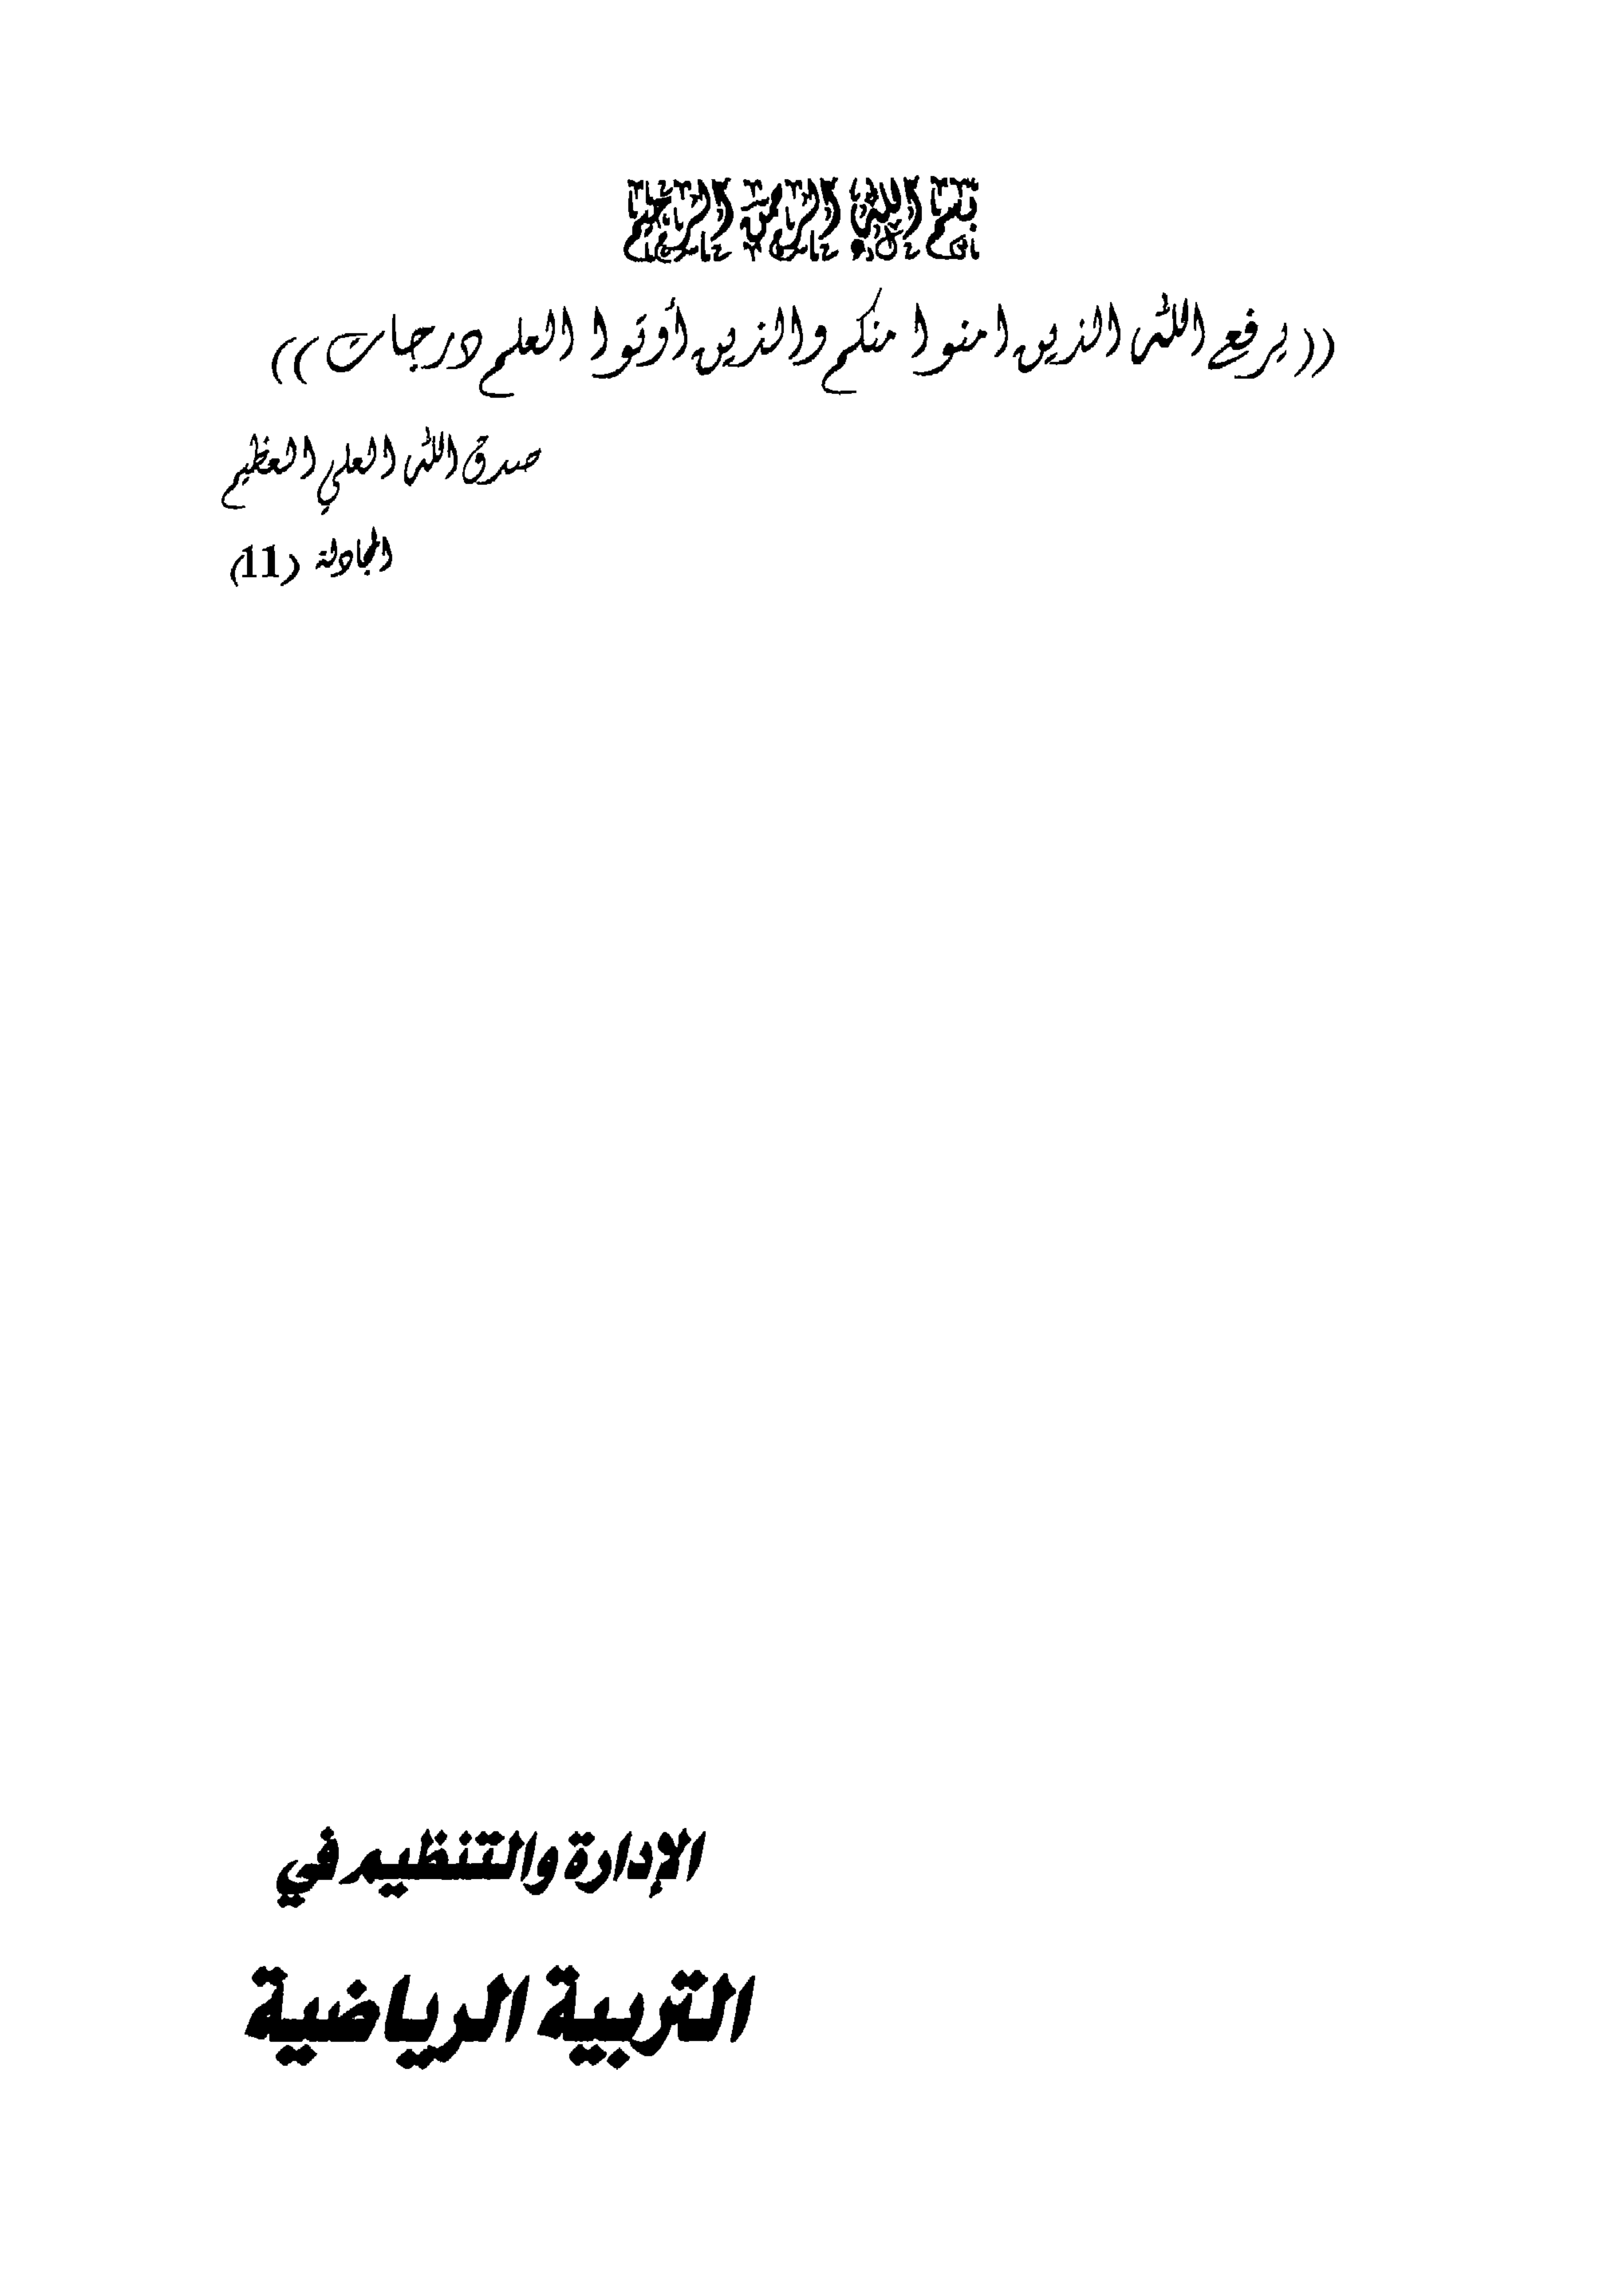 بسم الله الرحمن الرحيم
((يرفع الله الذين امنوا منكم والذين أوتوا العلم درجات))
صدق الله العلي العظيم
المجادلة (11)
الإدارة والتنظيم في
التربية الرياضية